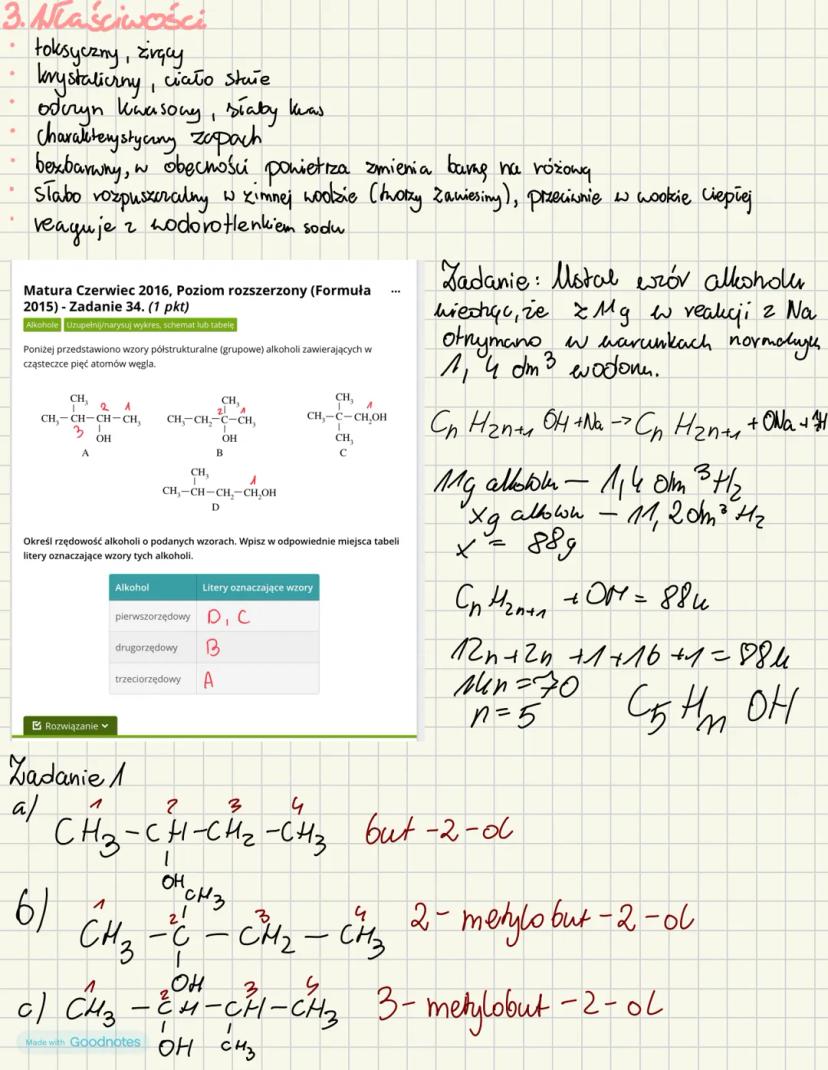 3. Właściwości
• toksyczny, żrący
• krystaliczny, ciało stałe
• odczyn kwasowy, słaby kwas
• charakterystyczny zapach
• bezbarwny, w obecności powietrza zmienia barwę na różową
• słabo rozpuszczalny w zimnej wodzie (tworzy zawiesiny), przeciwnie w wodzie ciepłej
• reaguje z wodorotlenkiem sodu
Matura Czerwiec 2016, Poziom rozszerzony (Formuła
2015) - Zadanie 34. (1 pkt)
...
Alkohole Uzupełnij/narysuj wykres, schemat lub tabelę
Poniżej przedstawiono wzory półstrukturalne (grupowe) alkoholi zawierających w
cząsteczce pięć atomów węgla.
CH₃
2 1
CH₃–CH–CH–CH₃
3 OH
A
CH₃
2 1
CH₃–CH₂–C–CH₃
OH
B
CH₃
1
CH₃–C–CH₂OH
CH₃
C
CH₃
1
CH₃–CH–CH₂–CH₂OH
D
Określ rzędowość alkoholi o podanych wzorach. Wpisz w odpowiednie miejsca tabeli
litery oznaczające wzory tych alkoholi.
Alkohol Litery oznaczające wzory
pierwszorzędowy D, C
drugorzędowy B
trzeciorzędowy A
Rozwiązanie
Zadanie: Ustal wzór alkoholu
wiedząc, że z 11g w reakcji z Na
otrzymano w warunkach normalnych
1,4 dm³ wodoru.
CₙH₂ₙ₊₁OH + Na -> CₙH₂ₙ₊₁ + ONa +
11g alkoholu – 1,4 dm³ H₂
xg alkoholu – 11,2 dm³ H₂
x = 88g
CₙH₂ₙ₊₁ + OH = 88u
12n + 2n + 1 + 16 + 1 = 88u
14n = 70
n = 5
C₅H₁₁OH
Zadanie 1
a) 1 2 3 4
CH₃-CH-CH₂-CH₃ but-2-ol
OH
b) CH₃
1 2 3 4
CH₃ – C – CH₂ – CH₃ 2-metylobut-2-ol
OH
1 2 3 4
c) CH₃ – CH – CH – CH₃ 3-metylobut-2-ol
OH CH₃
Made with Goodnotes